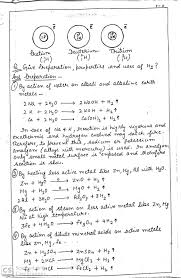 Protium Deuterium Tritium
(¹₁H) (²₁H) (³₁H)
Q. Give Preparation, properties and uses of H₂?
Preparation -
① By action of water on alkali and alkaline earth
metals -
2Na + 2H₂O → 2NaOH + H₂↑
2K + 2H₂O → 2KOH + H₂↑
Ca + 2H₂O → Ca(OH)₂ + H₂↑
In case of Na & K, reaction is highly vigorous and
exothermic and hydrogen evolved may catch fire.
Therefore, to prevent this, sodium or potassium
amalgam (alloy with mercury) is used. In amalgam
only small metal surface is exposed and therefore
reaction is slow.
② By heating less active metal like Zn, Mg, Al with H₂O.
Zn + H₂O → ZnO + H₂↑
Mg + H₂O → MgO + H₂↑
2Al + 3H₂O → Al₂O₃ + 3H₂↑
③ By action of steam on less active metal like Zn, Mg
et at high temperature.
3Fe + 4H₂O → Fe₃O₄ + 4H₂↑
④ By action of dilute mineral acids on active metals
like Zn, Mg, Fe -
Zn + H₂SO₄ → ZnSO₄ + H₂↑
Mg + 2HCl → MgCl₂ + H₂↑
Fe + 2HCl → FeCl₂ + H₂↑
CS